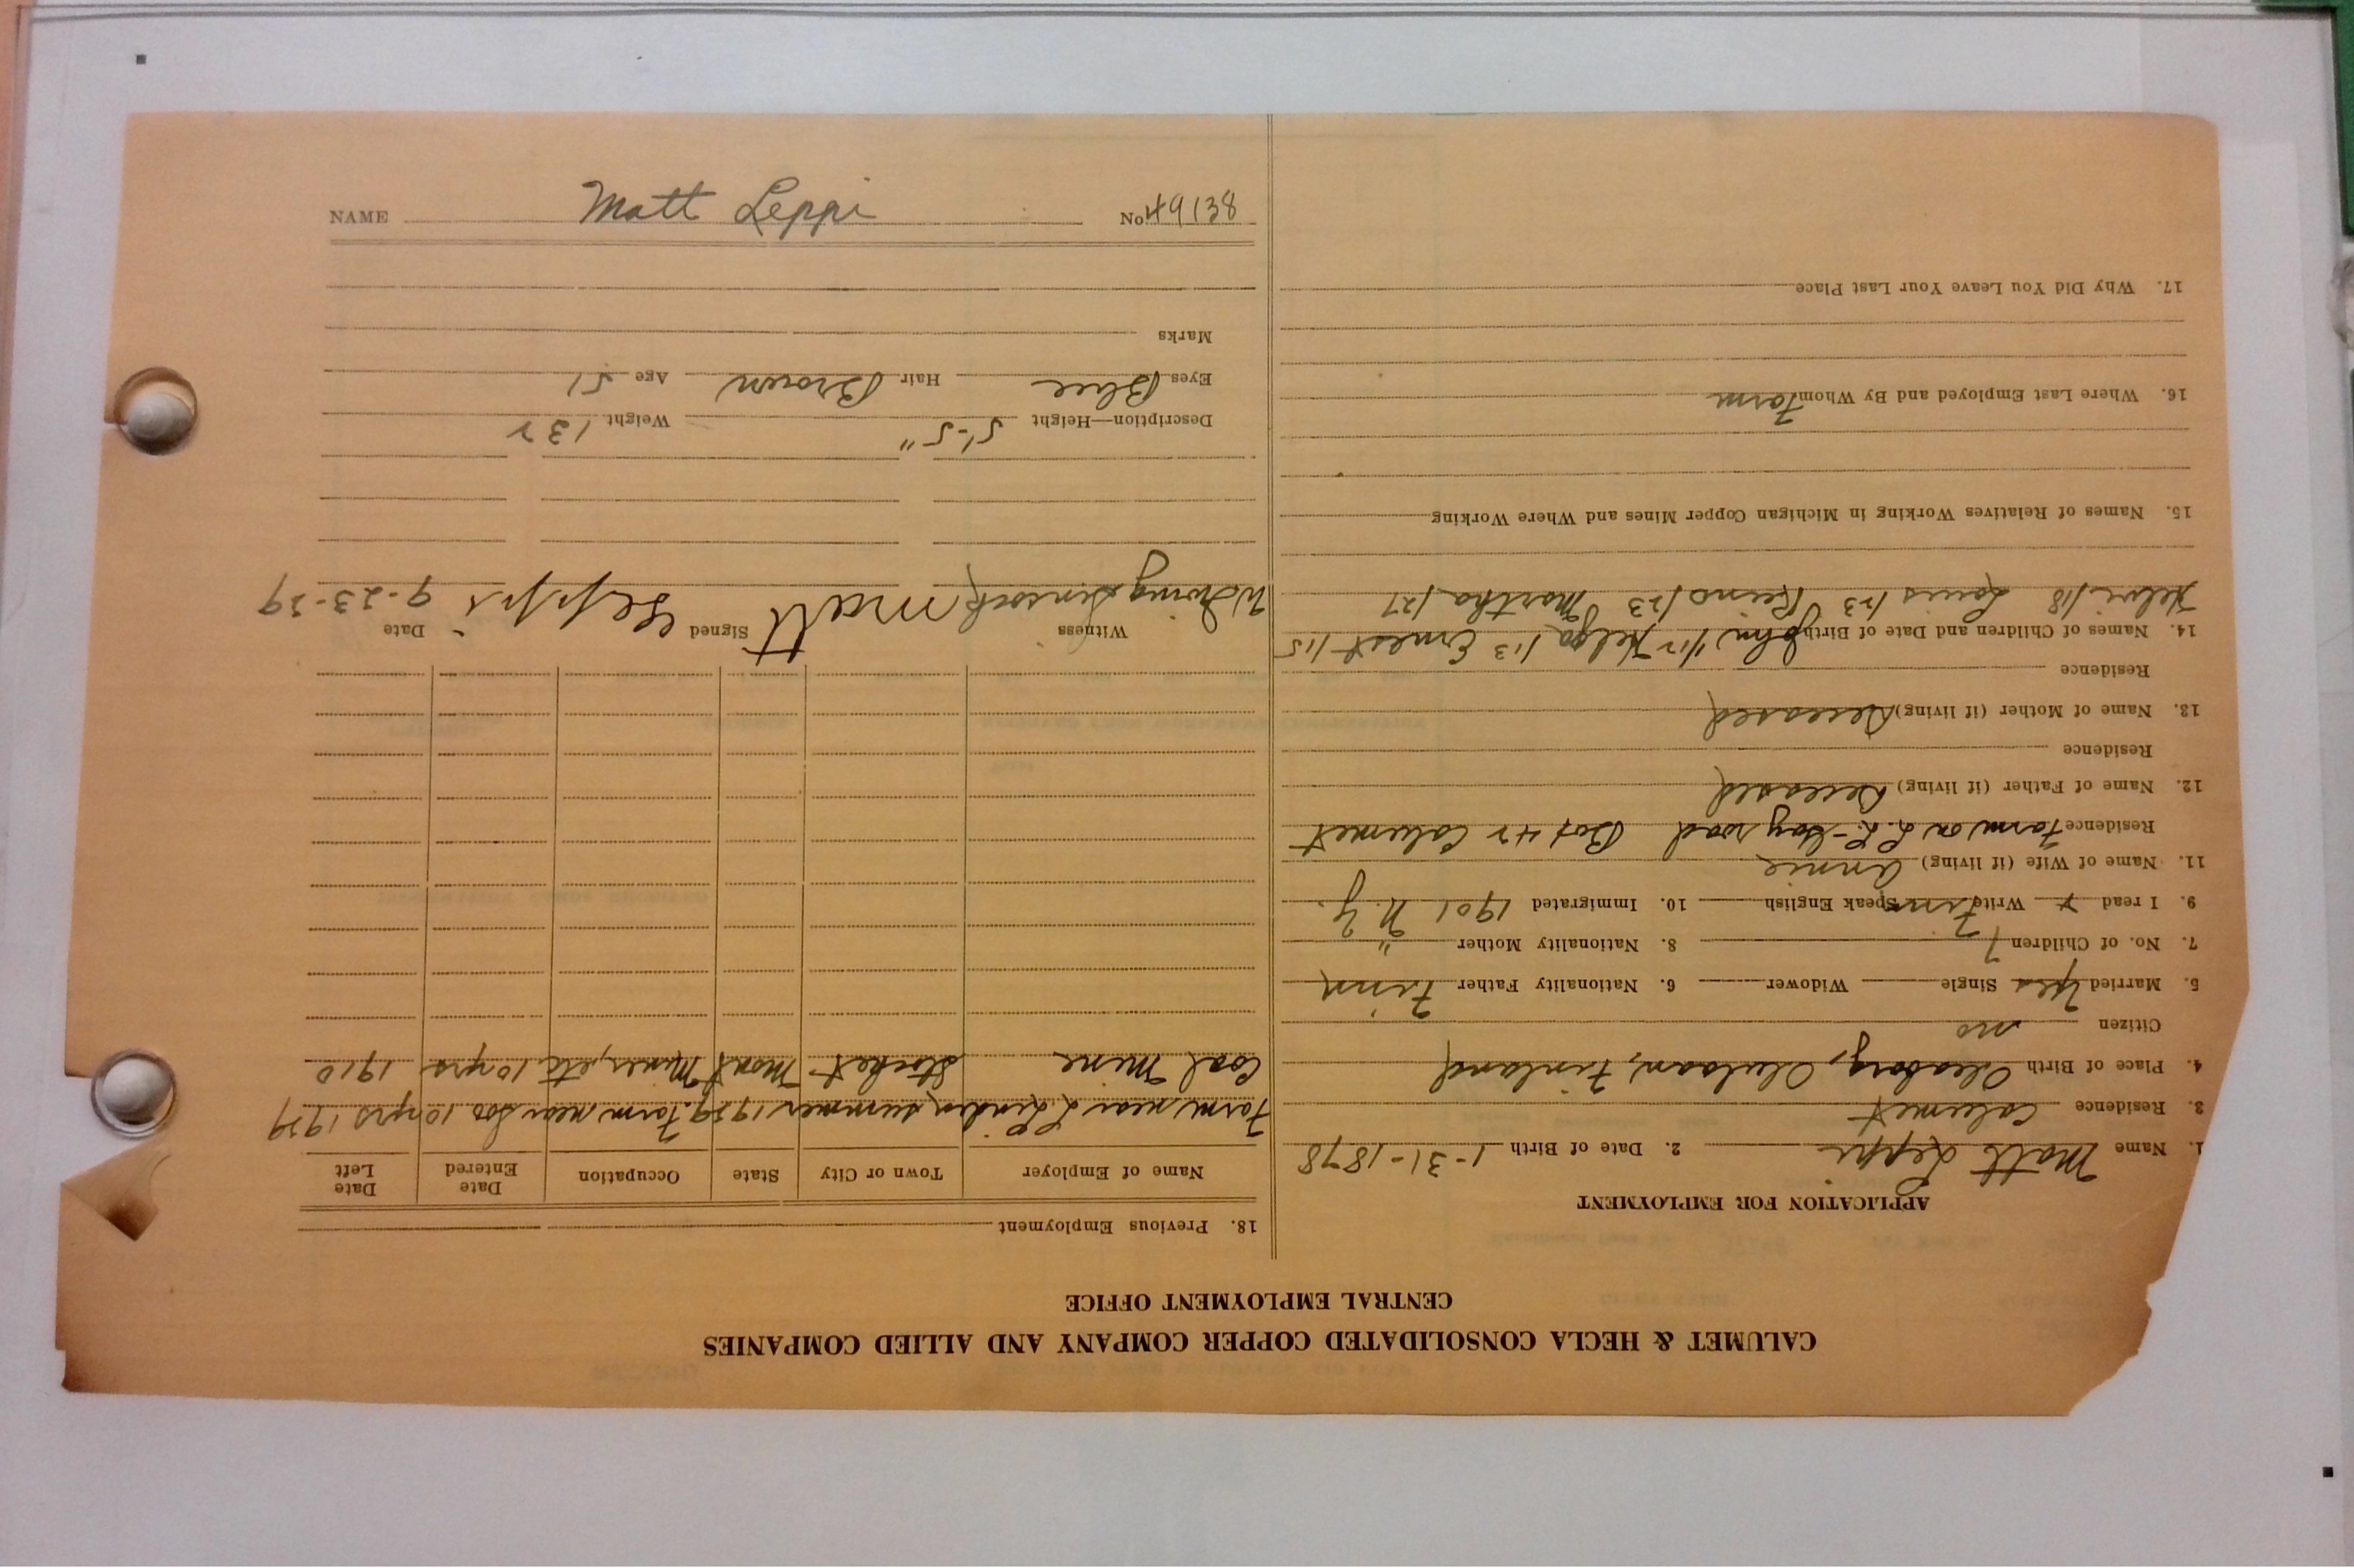 CALUMET & HECLA CONSOLIDATED COPPER COMPANY AND ALLIED COMPANIES
CENTRAL EMPLOYMENT OFFICE
APPLICATION FOR EMPLOYMENT
1. Name Matt Leppi 2. Date of Birth 1-31-1878
3. Residence Calumet
4. Place of Birth Oleaborg, Olulaani, Finland
Citizen no
5. Married Yes Single Widower 6. Nationality Father Finn
7. No. of Children 7 8. Nationality Mother "
9. I read x Write Finn Speak English 10. Immigrated 1901 N.Y.
11. Name of Wife (if living) Annie
Residence Farm on L.L.-Gay road Box 42 Calumet
12. Name of Father (if living) Deceased
Residence
13. Name of Mother (if living) Deceased
Residence
14. Names of Children and Date of Birth John 1/12 Helga 1/13 Ernest 1/15
Helvi 1/18 Louis 1/23 Reino 1/23 Martha 1/27
15. Names of Relatives Working in Michigan Copper Mines and Where Working
16. Where Last Employed and By Whom Farm
17. Why Did You Leave Your Last Place
18. Previous Employment
Name of Employer Town or City State Occupation Date Entered Date Left
Farm near L Linden, summer 1929. Farm near Soo 10 yrs 1929
Coal Mine Stockett Mont Miner, etc 10 yrs 1910
Witness Signed Date
Matt Leppi 9-23-29
Description—Height 5'-5" Weight 132
Eyes Blue Hair Brown Age 51
Marks
NAME Matt Leppi No. 49138